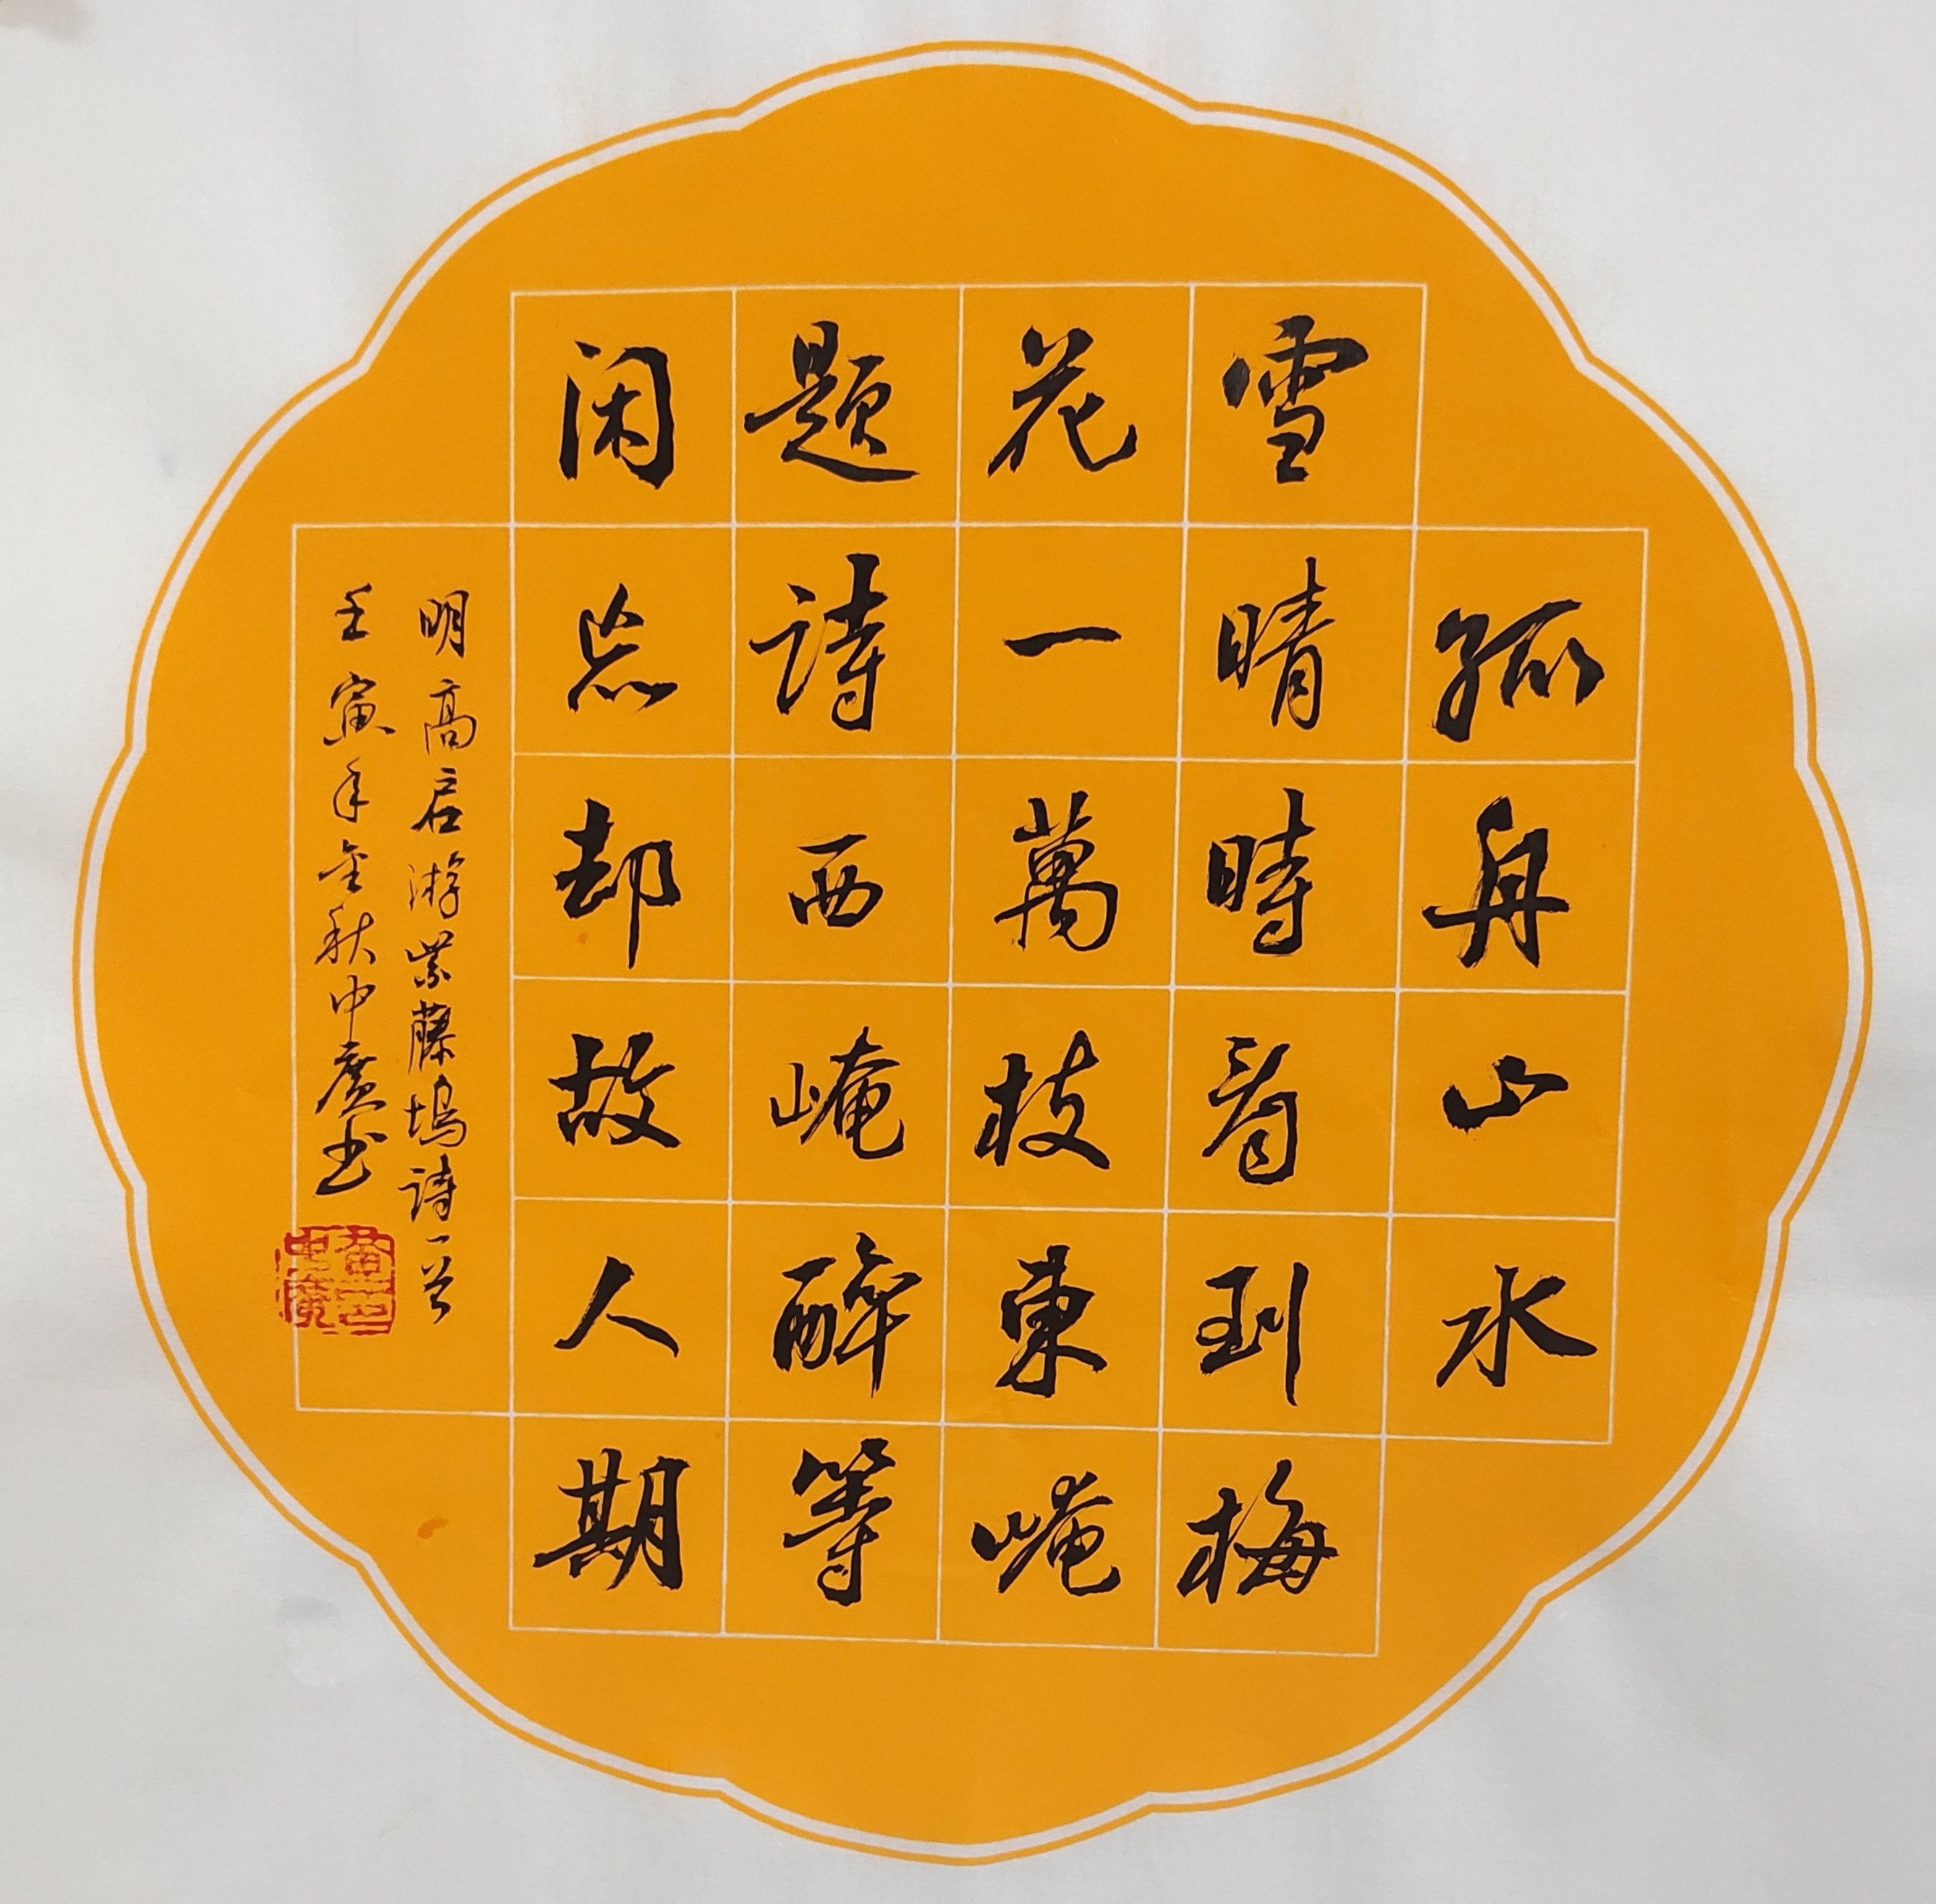 孤舟山水
雪晴時看到梅
花一萬枝東崦
題詩西崦醉等
闲忘却故人期
明高启游紫藤塢詩一首
壬寅年金秋中廣书